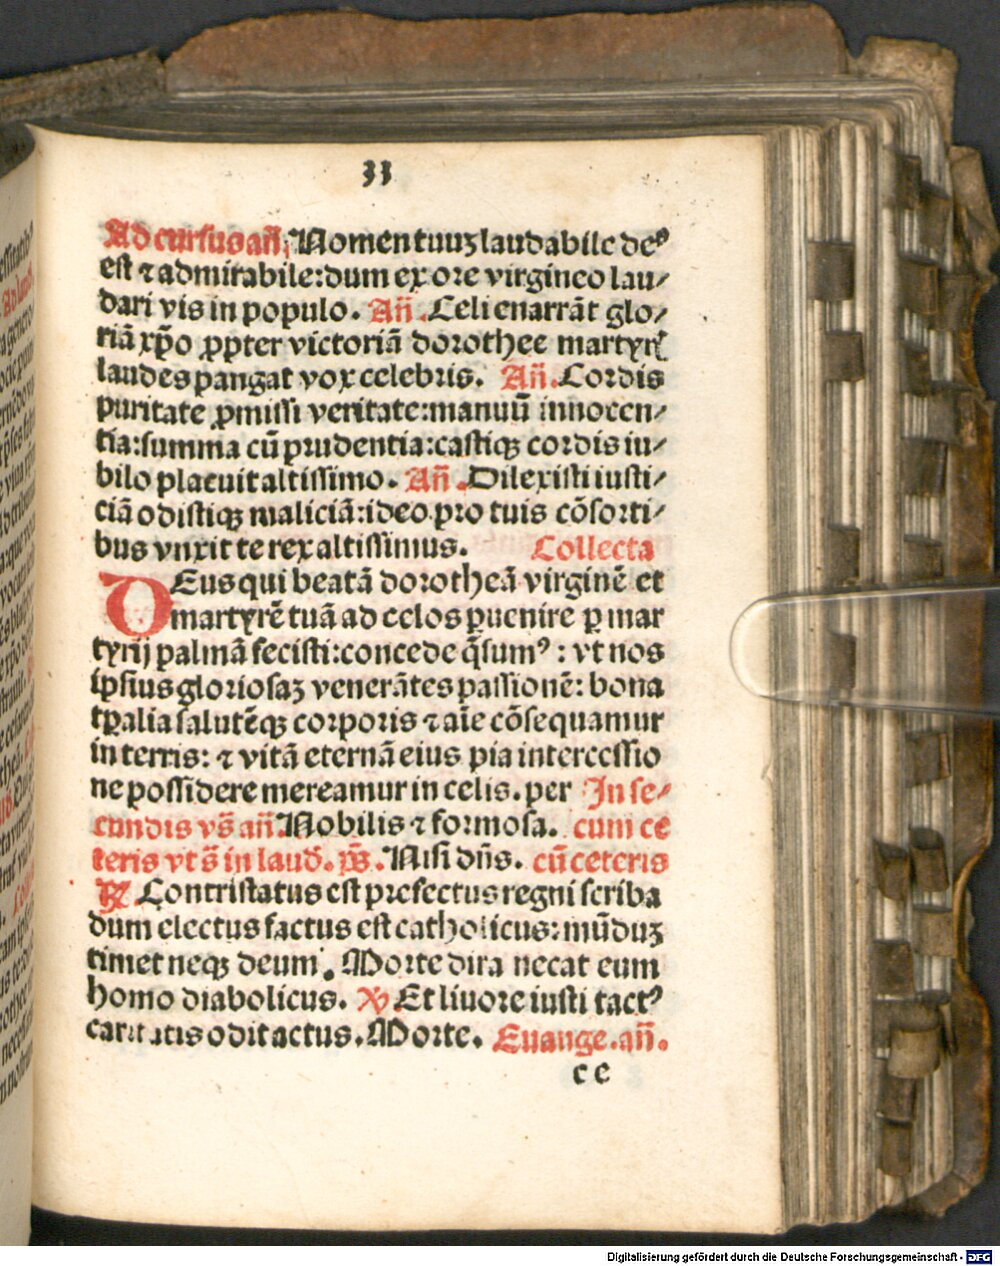 33
Ad cursus añ. Nomen tuuʒ laudabile deꝰ
est ⁊ admirabile: dum ex ore virgineo lau⸗
dari vis in populo. Añ. Celi enarrāt glo⸗
riā xp̄o ꝓpter victoriā dorothee martyrꝭ
laudes pangat vox celebris. Añ. Cordis
puritate ꝓmissi veritate: manuū innocen⸗
tia: summa cū prudentia: castiqꝫ cordis iu⸗
bilo placuit altissimo. Añ. Dilexisti iusti⸗
ciā odistiqꝫ maliciā: ideo pro tuis cōsorti⸗
bus vnxit te rex altissimus. Collecta
DEus qui beatā dorotheā virginē et
martyrē tuā ad celos ꝑuenire ꝑ mar
tyrij palmā fecisti: concede q̄sumꝰ: vt nos
ipsius gloriosaʒ venerātes passionē: bona
tꝑalia salutēqꝫ corporis ⁊ aīe cōsequamur
in terris: ⁊ vitā eternā eius pia intercessio
ne possidere mereamur in celis. per In se⸗
cundis vs̄ añ. Nobilis ⁊ formosa. cum ce
teris vt s̄ in laud̄. ps̄. Nisi dn̄s. cū ceteris
℞ Contristatus est prefectus regni scriba
dum electus factus est catholicus: mūduʒ
timet neqꝫ deum. Morte dira necat eum
homo diabolicus. ℣ Et liuore iusti tactꝰ
caritatis odit actus. Morte. Euange. añ.
c e
Digitalisierung gefördert durch die Deutsche Forschungsgemeinschaft - DFG